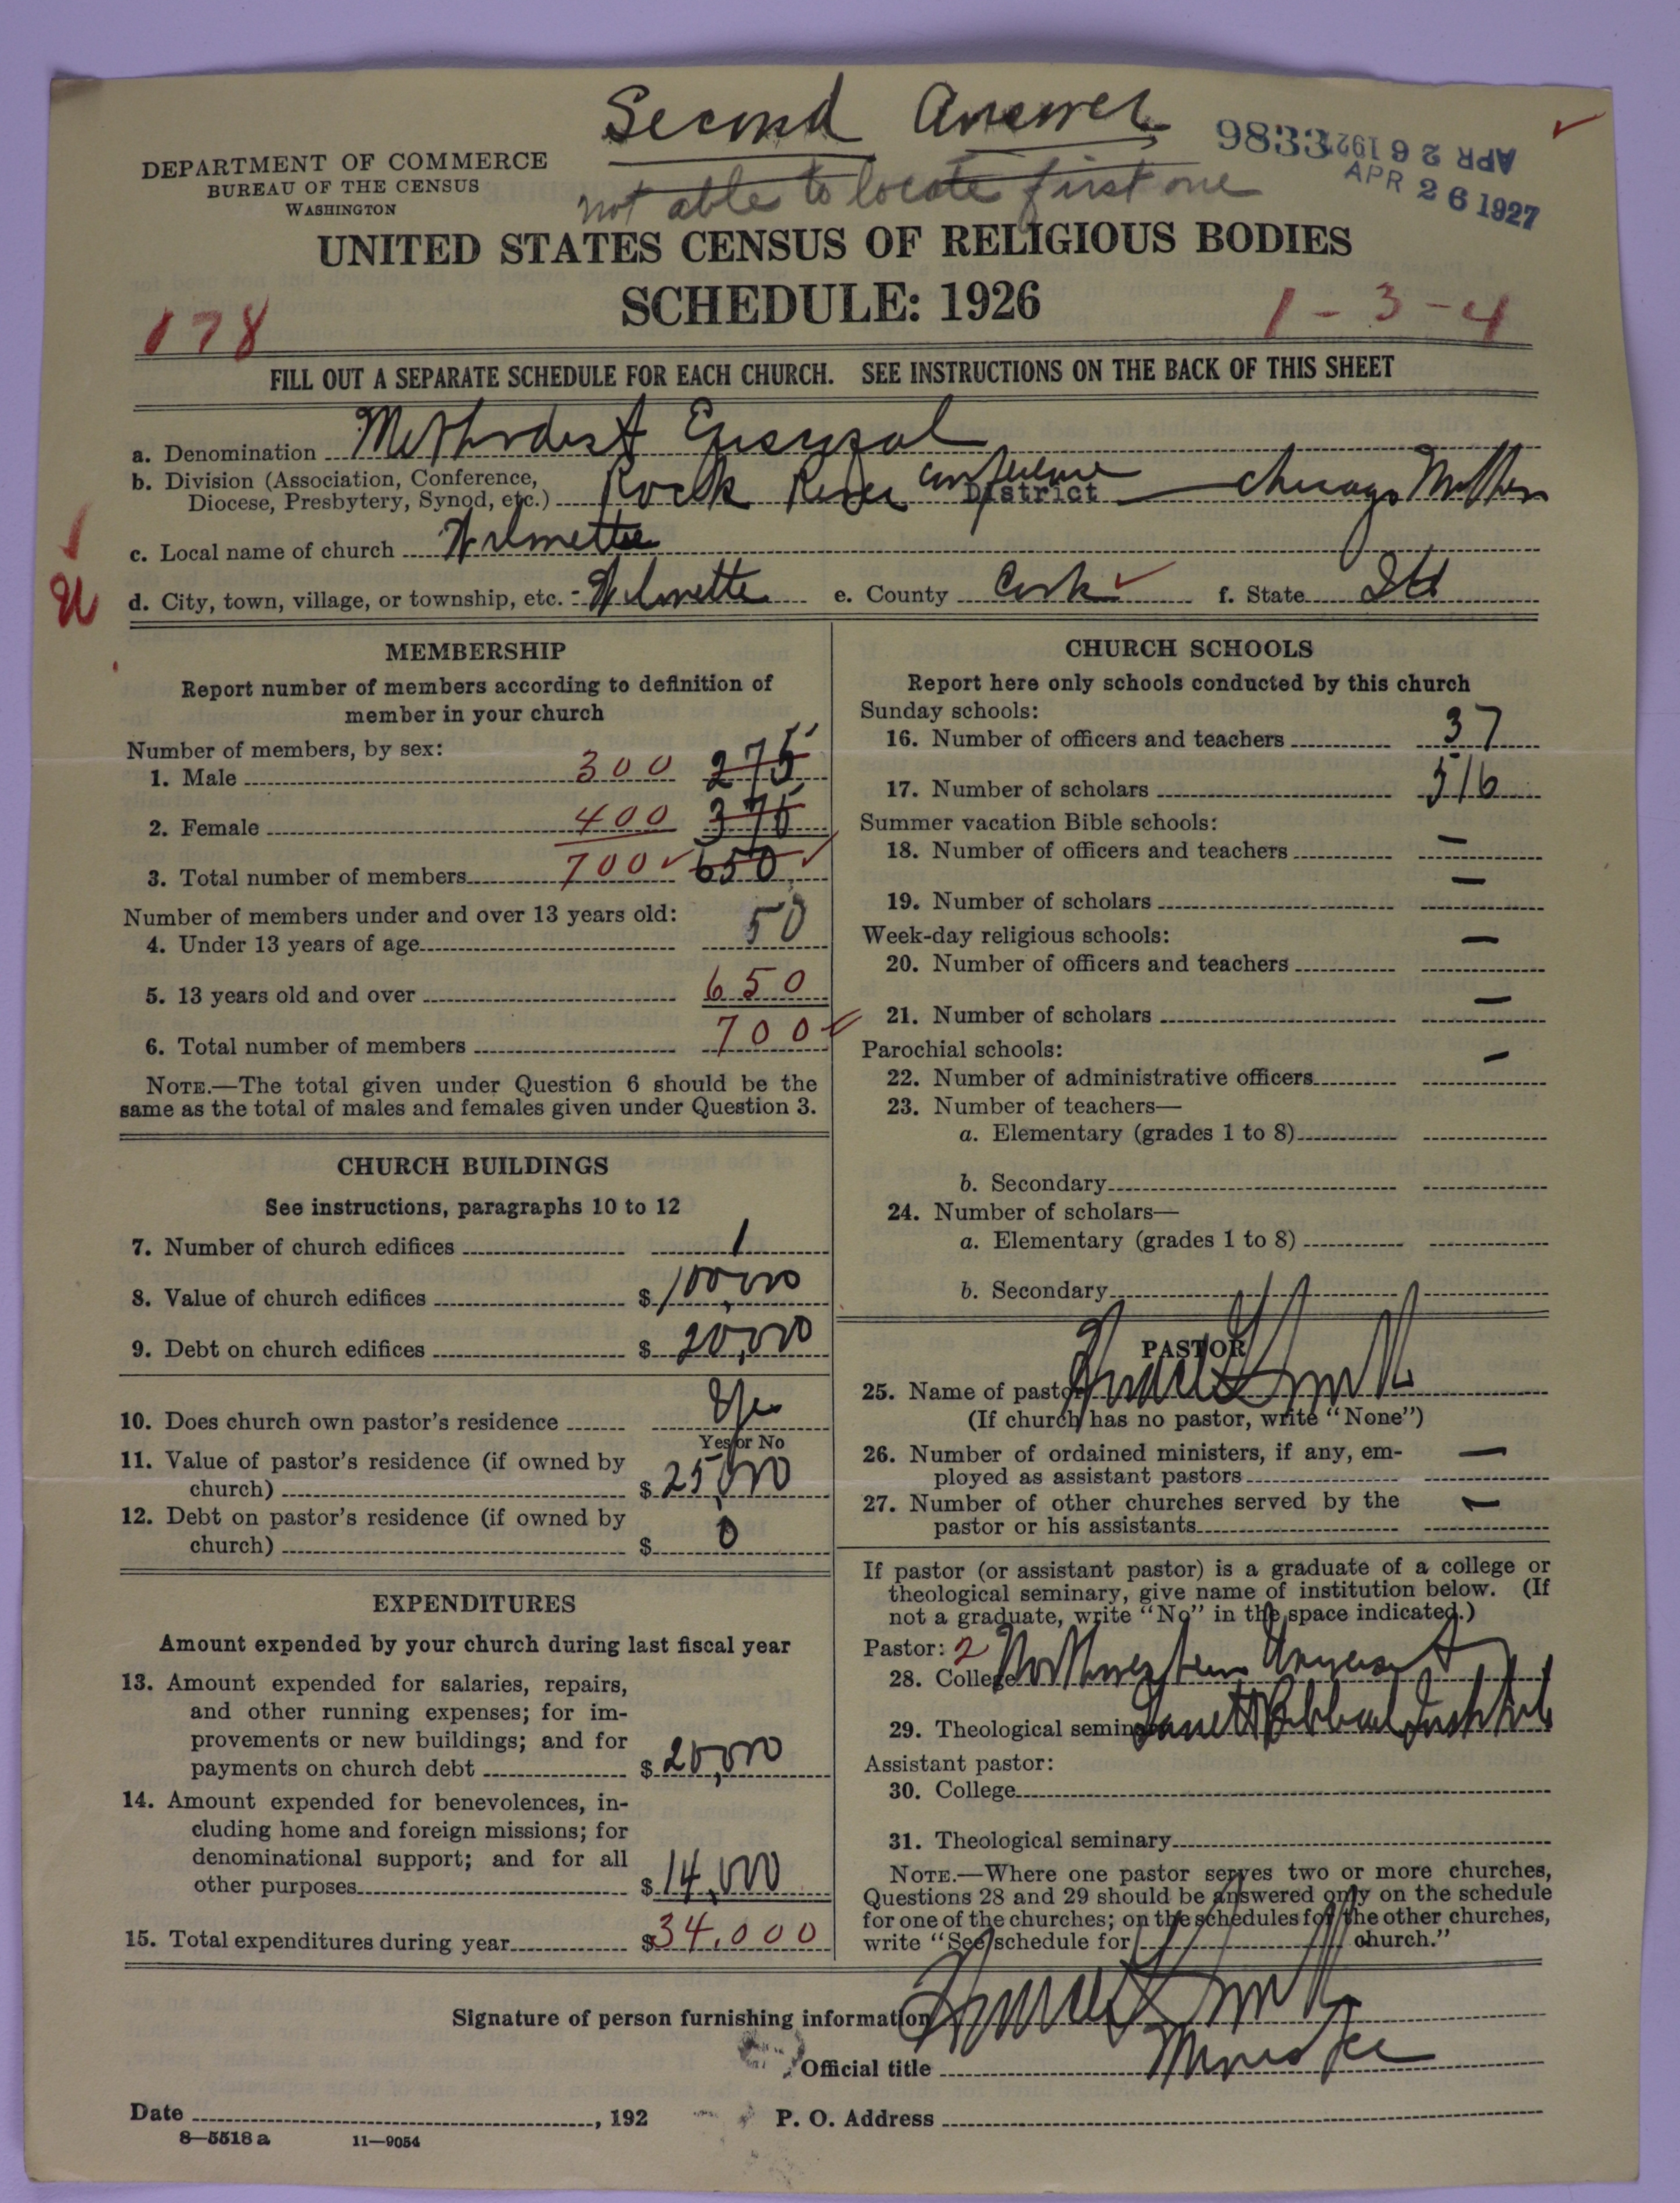 Second Answer
not able to locate first one
9833
APR 26 1927
APR 26 1927
DEPARTMENT OF COMMERCE
BUREAU OF THE CENSUS
WASHINGTON
UNITED STATES CENSUS OF RELIGIOUS BODIES
SCHEDULE: 1926
178
1-3-4
FILL OUT A SEPARATE SCHEDULE FOR EACH CHURCH. SEE INSTRUCTIONS ON THE BACK OF THIS SHEET
a. Denomination Methodist Episcopal
b. Division (Association, Conference,
Diocese, Presbytery, Synod, etc.) Rock River Conference District — Chicago Northern
c. Local name of church Wilmette
d. City, town, village, or township, etc. Wilmette e. County Cook f. State Ill
MEMBERSHIP
Report number of members according to definition of
member in your church
Number of members, by sex:
1. Male 300 275
2. Female 400 375
3. Total number of members 700 650
Number of members under and over 13 years old:
4. Under 13 years of age 50
5. 13 years old and over 650
6. Total number of members 700
NOTE.—The total given under Question 6 should be the
same as the total of males and females given under Question 3.
CHURCH BUILDINGS
See instructions, paragraphs 10 to 12
7. Number of church edifices 1
8. Value of church edifices $100,000
9. Debt on church edifices $20,000
10. Does church own pastor's residence Yes
Yes or No
11. Value of pastor's residence (if owned by
church) $25,000
12. Debt on pastor's residence (if owned by
church) $0
EXPENDITURES
Amount expended by your church during last fiscal year
13. Amount expended for salaries, repairs,
and other running expenses; for im-
provements or new buildings; and for
payments on church debt $20,000
14. Amount expended for benevolences, in-
cluding home and foreign missions; for
denominational support; and for all
other purposes $14,000
15. Total expenditures during year $34,000
CHURCH SCHOOLS
Report here only schools conducted by this church
Sunday schools:
16. Number of officers and teachers 37
17. Number of scholars 516
Summer vacation Bible schools:
18. Number of officers and teachers —
19. Number of scholars —
Week-day religious schools:
20. Number of officers and teachers —
21. Number of scholars —
Parochial schools:
22. Number of administrative officers —
23. Number of teachers—
a. Elementary (grades 1 to 8)
b. Secondary
24. Number of scholars—
a. Elementary (grades 1 to 8)
b. Secondary
PASTOR
25. Name of pastor Horace G Smith
(If church has no pastor, write "None")
26. Number of ordained ministers, if any, em-
ployed as assistant pastors —
27. Number of other churches served by the
pastor or his assistants —
If pastor (or assistant pastor) is a graduate of a college or
theological seminary, give name of institution below. (If
not a graduate, write "No" in the space indicated.)
Pastor: 2
28. College Northwestern University
29. Theological seminary Garrett Biblical Institute
Assistant pastor:
30. College
31. Theological seminary
NOTE.—Where one pastor serves two or more churches,
Questions 28 and 29 should be answered only on the schedule
for one of the churches; on the schedules for the other churches,
write "See schedule for church."
Signature of person furnishing information Horace G Smith
Official title Minister
Date , 192 P. O. Address
8—5518 a 11—9054